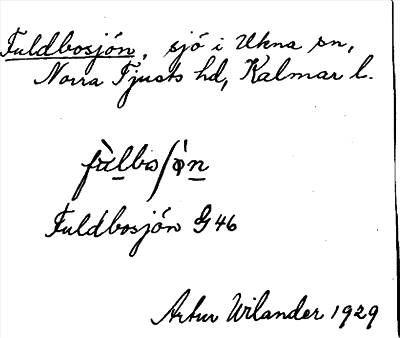 Fuldbosjön, sjö i Ukna sn,
Norra Tjusts hd, Kalmar l.
Fuldbosjön G 46
Artur Wilander 1929